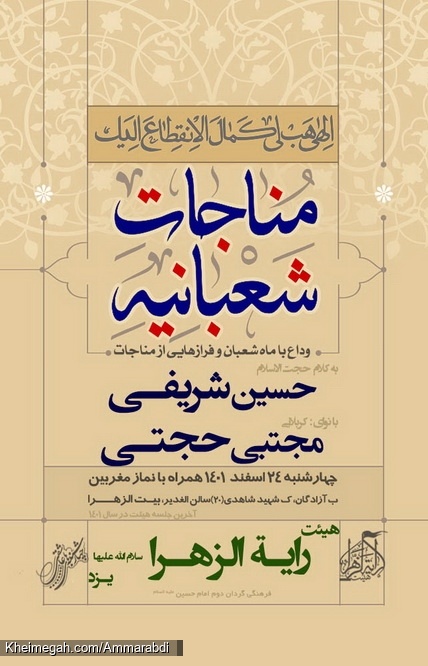 الهی هب لی کمال الانقطاع الیک
مناجات
شعبانیه
وداع با ماه شعبان و فرازهایی از مناجات
به کلام حجت‌الاسلام
حسین شریفی
با نوای: کربلایی
مجتبی حجتی
چهارشنبه ۲۴ اسفند ۱۴۰۱ همراه با نماز مغربین
ب آزادگان، ک شهید شاهدی(۲۰)سالن الغدیر، بیت الزهرا
آخرین جلسه هیئت در سال ۱۴۰۱
هیئت
رایة الزهرا سلام الله علیها
یزد
فرهنگی گردان دوم امام حسین علیه السلام
Kheimegah.com/Ammarabdi